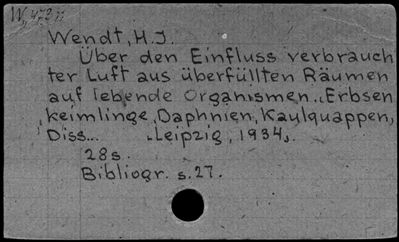 W 472
Wendt, H.J.
Über den Einfluss verbrauch
ter Luft aus überfüllten Räumen
auf lebende Organismen..Erbsen
keimlinge, Daphnien, Kaulquappen,
Diss... Leipzig, 1934.
28s.
Bibliogr. s.27.